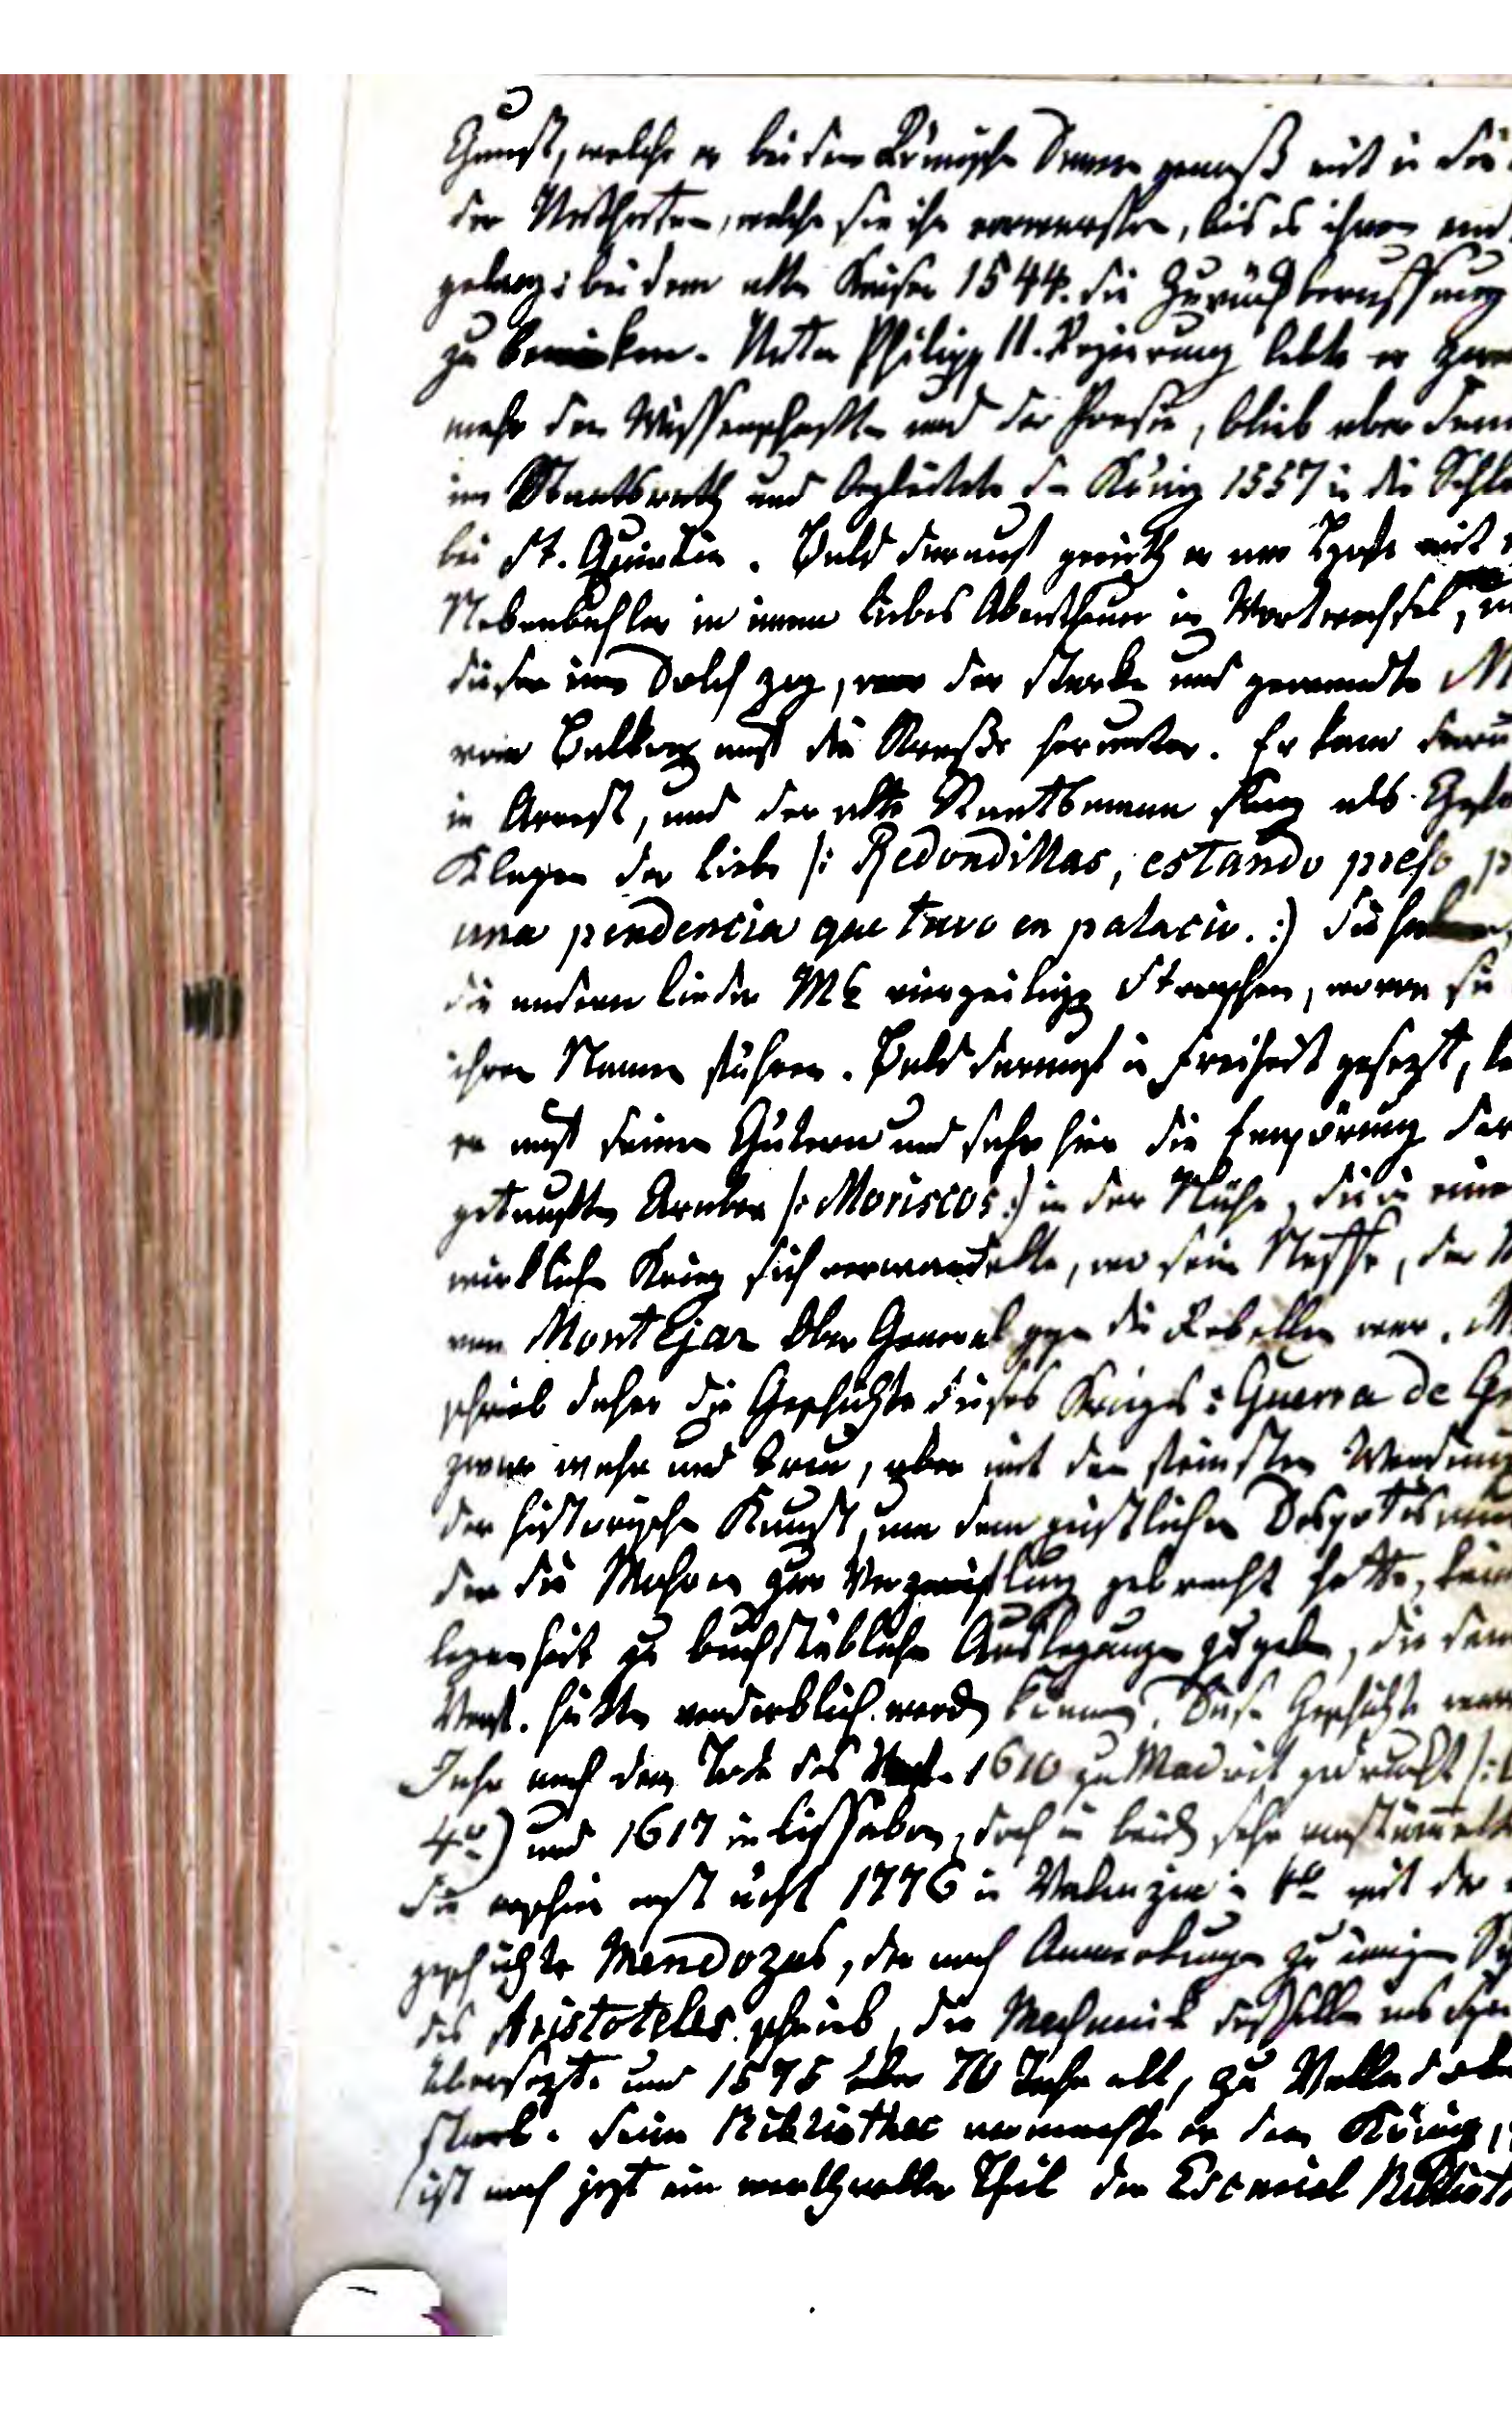 Gunst, welche er bei den Römischen Damen genoß mit in die
der Unthaten, welche sie ihm vorwarfen, bis es ihnen end
gelang: bei dem alten Kaiser 1544. die Zurückberuffung
zu bewirken. Unter Philipp II. Regierung lebte er zwar
mehr den Wissenschaften und der Poesie, blieb aber denn
im Staatsrath und begleitete den König 1557 in die Schla
bei St. Quintin. Bald darauf gerieth er am Hofe mit
Nebenbuhler in einem Liebes Abentheuer in Wortwechsel,
dieser einen Dolch zog, warf der starke und gewandte M
vom Balkon auf die Straße herunter. Er kam darü
in Arrest, und der alte Staatsmann sang als Gefa
Klagen der Liebe /: Redondillas, estando preso p
una pendencia que tuvo en palacio. :) Sie haben
die andern Lieder Mz vierzeilige Strophen, wovon sie
ihren Namen führen. Bald darauf in Freiheit gesezt, le
er auf seinen Gütern und sahe hier die Empörung der
getauften Araber /: Moriscos :) in der Nähe, die in eine
wirklichen Krieg sich verwandelte, wo sein Neffe, der
von Montejar Ober General gegen die Rebellen war. M
schrieb daher die Geschichte dieses Krieges: Guerra de Gr
zwar wahr und treu, aber mit den feinsten Wendung
der historischen Kunst, um dem geistlichen Despotismu
der die Mohren zur Verzweiflung gebracht hatte, kein
legenheit zu buchstäblichen Auslegungen zu geben, die dem
Verf. hätten verderblich werden können. Diese Geschichte war
Jahr nach dem Tode des Verf. 1610 zu Madrit gedruckt /:
4to) und 1617 in Lissabon, doch in beiden sehr verstümmelt
Sie erschien erst ächt 1776 in Valenzia in 4to mit der
geschichte Mendozas, der noch Anmerkungen zu einigen Sch
des Aristoteles schrieb, die Mechanik desselben ins Spa
übersezte und 1575 über 70 Jahr alt, zu Vallado
starb. Seine Bibliothec vermachte er dem König,
ist noch jezt ein werthvoller Theil der Escurial Biblioth